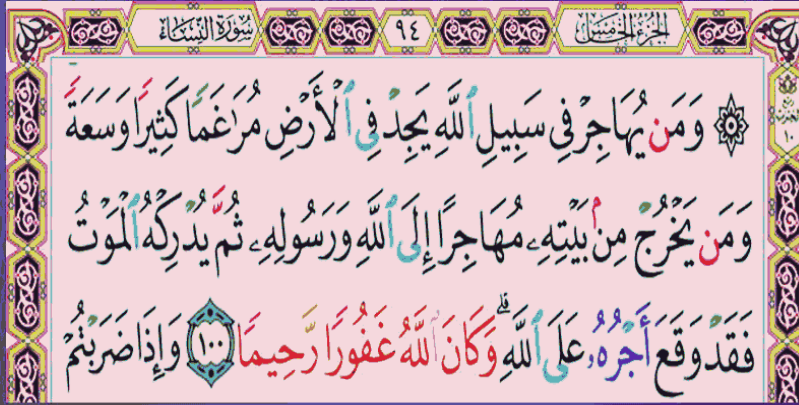 سُورَةُ النِّسَاءِ ٩٤ الجُزْءُ الخَامِسُ
وَمَن يُهَاجِرْ فِى سَبِيلِ ٱللَّهِ يَجِدْ فِى ٱلْأَرْضِ مُرَٰغَمًا كَثِيرًا وَسَعَةً
وَمَن يَخْرُجْ مِنۢ بَيْتِهِۦ مُهَاجِرًا إِلَى ٱللَّهِ وَرَسُولِهِۦ ثُمَّ يُدْرِكْهُ ٱلْمَوْتُ
فَقَدْ وَقَعَ أَجْرُهُۥ عَلَى ٱللَّهِۗ وَكَانَ ٱللَّهُ غَفُورًا رَّحِيمًا ١٠٠ وَإِذَا ضَرَبْتُمْ